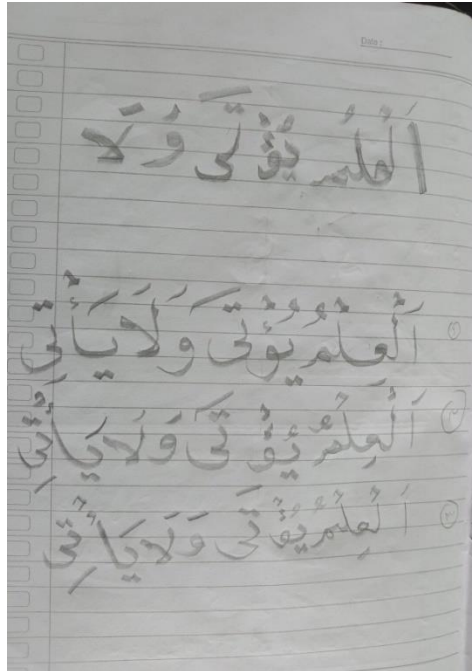 Date :
اَلْعِلْمُ يُؤْتَى وَلَا
١ اَلْعِلْمُ يُؤْتَى وَلَا يَأْتِي
٢ اَلْعِلْمُ يُؤْتَى وَلَا يَأْتِي
٣ اَلْعِلْمُ يُؤْتَى وَلَا يَأْتِي